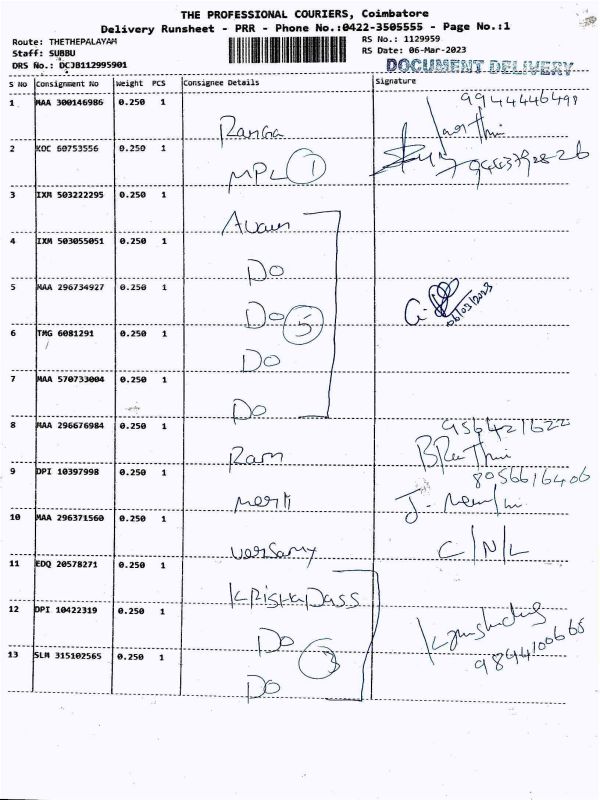 THE PROFESSIONAL COURIERS, Coimbatore
Delivery Runsheet - PRR - Phone No.:0422-3505555 - Page No.:1
Route: THETHEPALAYAM
RS No.: 1129959
Staff: SUBBU
RS Date: 06-Mar-2023
DRS No.: DCJB112995901
DOCUMENT DELIVERY
S No Consignment No Weight PCS Consignee Details Signature
1 MAA 300146986 0.250 1
Ranga
2 KOC 60753556 0.250 1
MPL 1
3 IXM 503222295 0.250 1
4 IXM 503055051 0.250 1
Do
5 MAA 296734927 0.250 1
Do 5 06/03/2023
6 TMG 6081291 0.250 1
Do
7 MAA 570733004 0.250 1
Do
8 MAA 296676984 0.250 1
Ram
9 DPI 10397998 0.250 1
8056616406
10 MAA 296371560 0.250 1
C/N/L
11 EDQ 20578271 0.250 1
Krishadass
12 DPI 10422319 0.250 1
Do 3
13 SLM 315102565 0.250 1
9894100665
Do